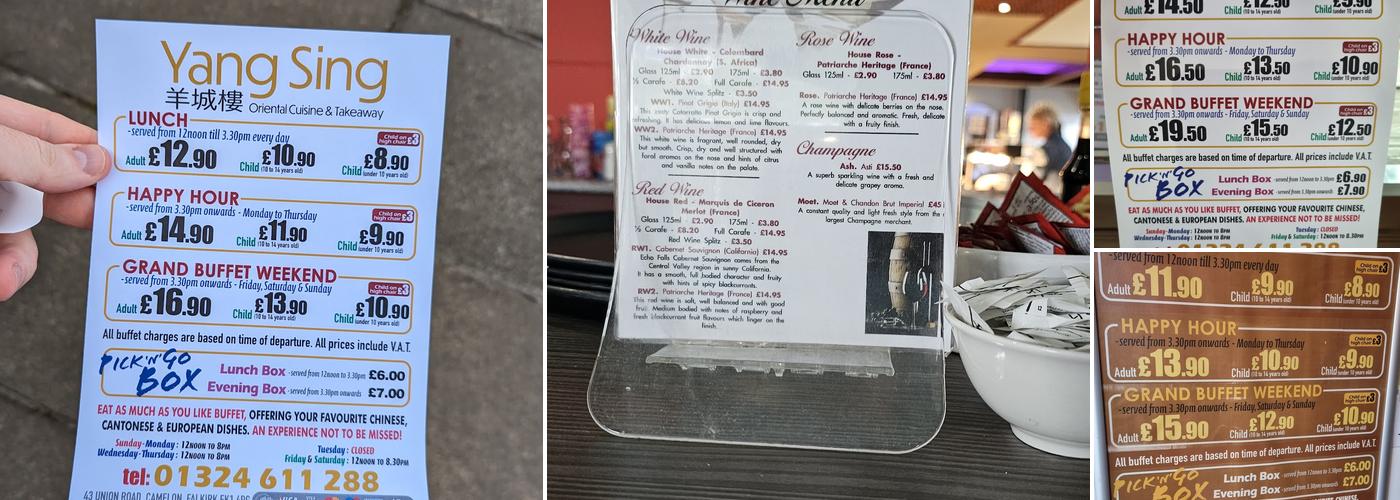 Yang Sing
羊城樓 Oriental Cuisine & Takeaway
LUNCH
-served from 12noon till 3.30pm every day
Child on high chair £3
Adult £12.90 Child (10 to 14 years old) £10.90 Child (under 10 years old) £8.90
HAPPY HOUR
-served from 3.30pm onwards - Monday to Thursday
Child on high chair £3
Adult £14.90 Child (10 to 14 years old) £11.90 Child (under 10 years old) £9.90
GRAND BUFFET WEEKEND
-served from 3.30pm onwards - Friday, Saturday & Sunday
Child on high chair £3
Adult £16.90 Child (10 to 14 years old) £13.90 Child (under 10 years old) £10.90
All buffet charges are based on time of departure. All prices include V.A.T.
PICK'N'GO BOX
Lunch Box -served from 12noon to 3.30pm £6.00
Evening Box -served from 3.30pm onwards £7.00
EAT AS MUCH AS YOU LIKE BUFFET, OFFERING YOUR FAVOURITE CHINESE,
CANTONESE & EUROPEAN DISHES. AN EXPERIENCE NOT TO BE MISSED!
Sunday-Monday: 12NOON TO 8PM Tuesday: CLOSED
Wednesday-Thursday: 12NOON TO 8PM Friday & Saturday: 12NOON TO 8.30PM
tel: 01324 611 288
43 UNION ROAD, CAMELON, FALKIRK
Wine Menu
White Wine
House White - Colombard
Chardonnay (S. Africa)
Glass 125ml - £2.90 175ml - £3.80
½ Carafe - £8.20 Full Carafe - £14.95
White Wine Splitz - £3.50
WW1. Pinot Grigio (Italy) £14.95
This zesty Catarratto Pinot Grigio is crisp and
refreshing. It has delicious lemon and lime flavours.
WW2. Patriarche Heritage (France) £14.95
This white wine is fragrant, well rounded, dry
but smooth. Crisp, dry and well structured with
floral aromas on the nose and hints of citrus
and vanilla notes on the palate.
Red Wine
House Red - Marquis de Ciceron
Merlot (France)
Glass 125ml - £2.90 175ml - £3.80
½ Carafe - £8.20 Full Carafe - £14.95
Red Wine Splitz - £3.50
RW1. Cabernet Sauvignon (California) £14.95
Echo Falls Cabernet Sauvignon comes from the
Central Valley region in sunny California.
It has a smooth, full bodied character and fruity
with hints of spicy blackcurrants.
RW2. Patriarche Heritage (France) £14.95
This red wine is soft, well balanced and with good
fruit. Medium bodied with notes of raspberry and
fresh blackcurrant fruit flavours which linger on the
finish.
Rose Wine
House Rose -
Patriarche Heritage (France)
Glass 125ml - £2.90 175ml - £3.80
Rose. Patriarche Heritage (France) £14.95
A rose wine with delicate berries on the nose.
Perfectly balanced and aromatic. Fresh, delicate
with a fruity finish.
Champagne
Ash. Asti £15.50
A superb sparkling wine with a fresh and
delicate grapey aroma.
Moet. Moet & Chandon Brut Imperial £45
A constant quality and light fresh style from the
largest Champagne merchant.
Adult £14.50 Child (10 to 14 years old) £12.50 Child (under 10 years old)
HAPPY HOUR
-served from 3.30pm onwards - Monday to Thursday
Child on high chair £3
Adult £16.50 Child (10 to 14 years old) £13.50 Child (under 10 years old) £10.90
GRAND BUFFET WEEKEND
-served from 3.30pm onwards - Friday, Saturday & Sunday
Child on high chair £3
Adult £19.50 Child (10 to 14 years old) £15.50 Child (under 10 years old) £12.50
All buffet charges are based on time of departure. All prices include V.A.T.
PICK'N'GO BOX
Lunch Box -served from 12noon to 3.30pm £6.90
Evening Box -served from 3.30pm onwards £7.90
EAT AS MUCH AS YOU LIKE BUFFET, OFFERING YOUR FAVOURITE CHINESE,
CANTONESE & EUROPEAN DISHES. AN EXPERIENCE NOT TO BE MISSED!
Sunday-Monday: 12NOON TO 8PM Tuesday: CLOSED
Wednesday-Thursday: 12NOON TO 8PM Friday & Saturday: 12NOON TO 8.30PM
-served from 12noon till 3.30pm every day
Child on high chair £3
Adult £11.90 Child (10 to 14 years old) £9.90 Child (under 10 years old) £8.90
HAPPY HOUR
-served from 3.30pm onwards - Monday to Thursday
Child on high chair £3
Adult £13.90 Child (10 to 14 years old) £10.90 Child (under 10 years old) £9.90
GRAND BUFFET WEEKEND
-served from 3.30pm onwards - Friday, Saturday & Sunday
Child on high chair £3
Adult £15.90 Child (10 to 14 years old) £12.90 Child (under 10 years old) £10.90
All buffet charges are based on time of departure. All prices include V.A.T.
PICK'N'GO BOX
Lunch Box -served from 12noon to 3.30pm £6.00
Evening Box -served from 3.30pm onwards £7.00